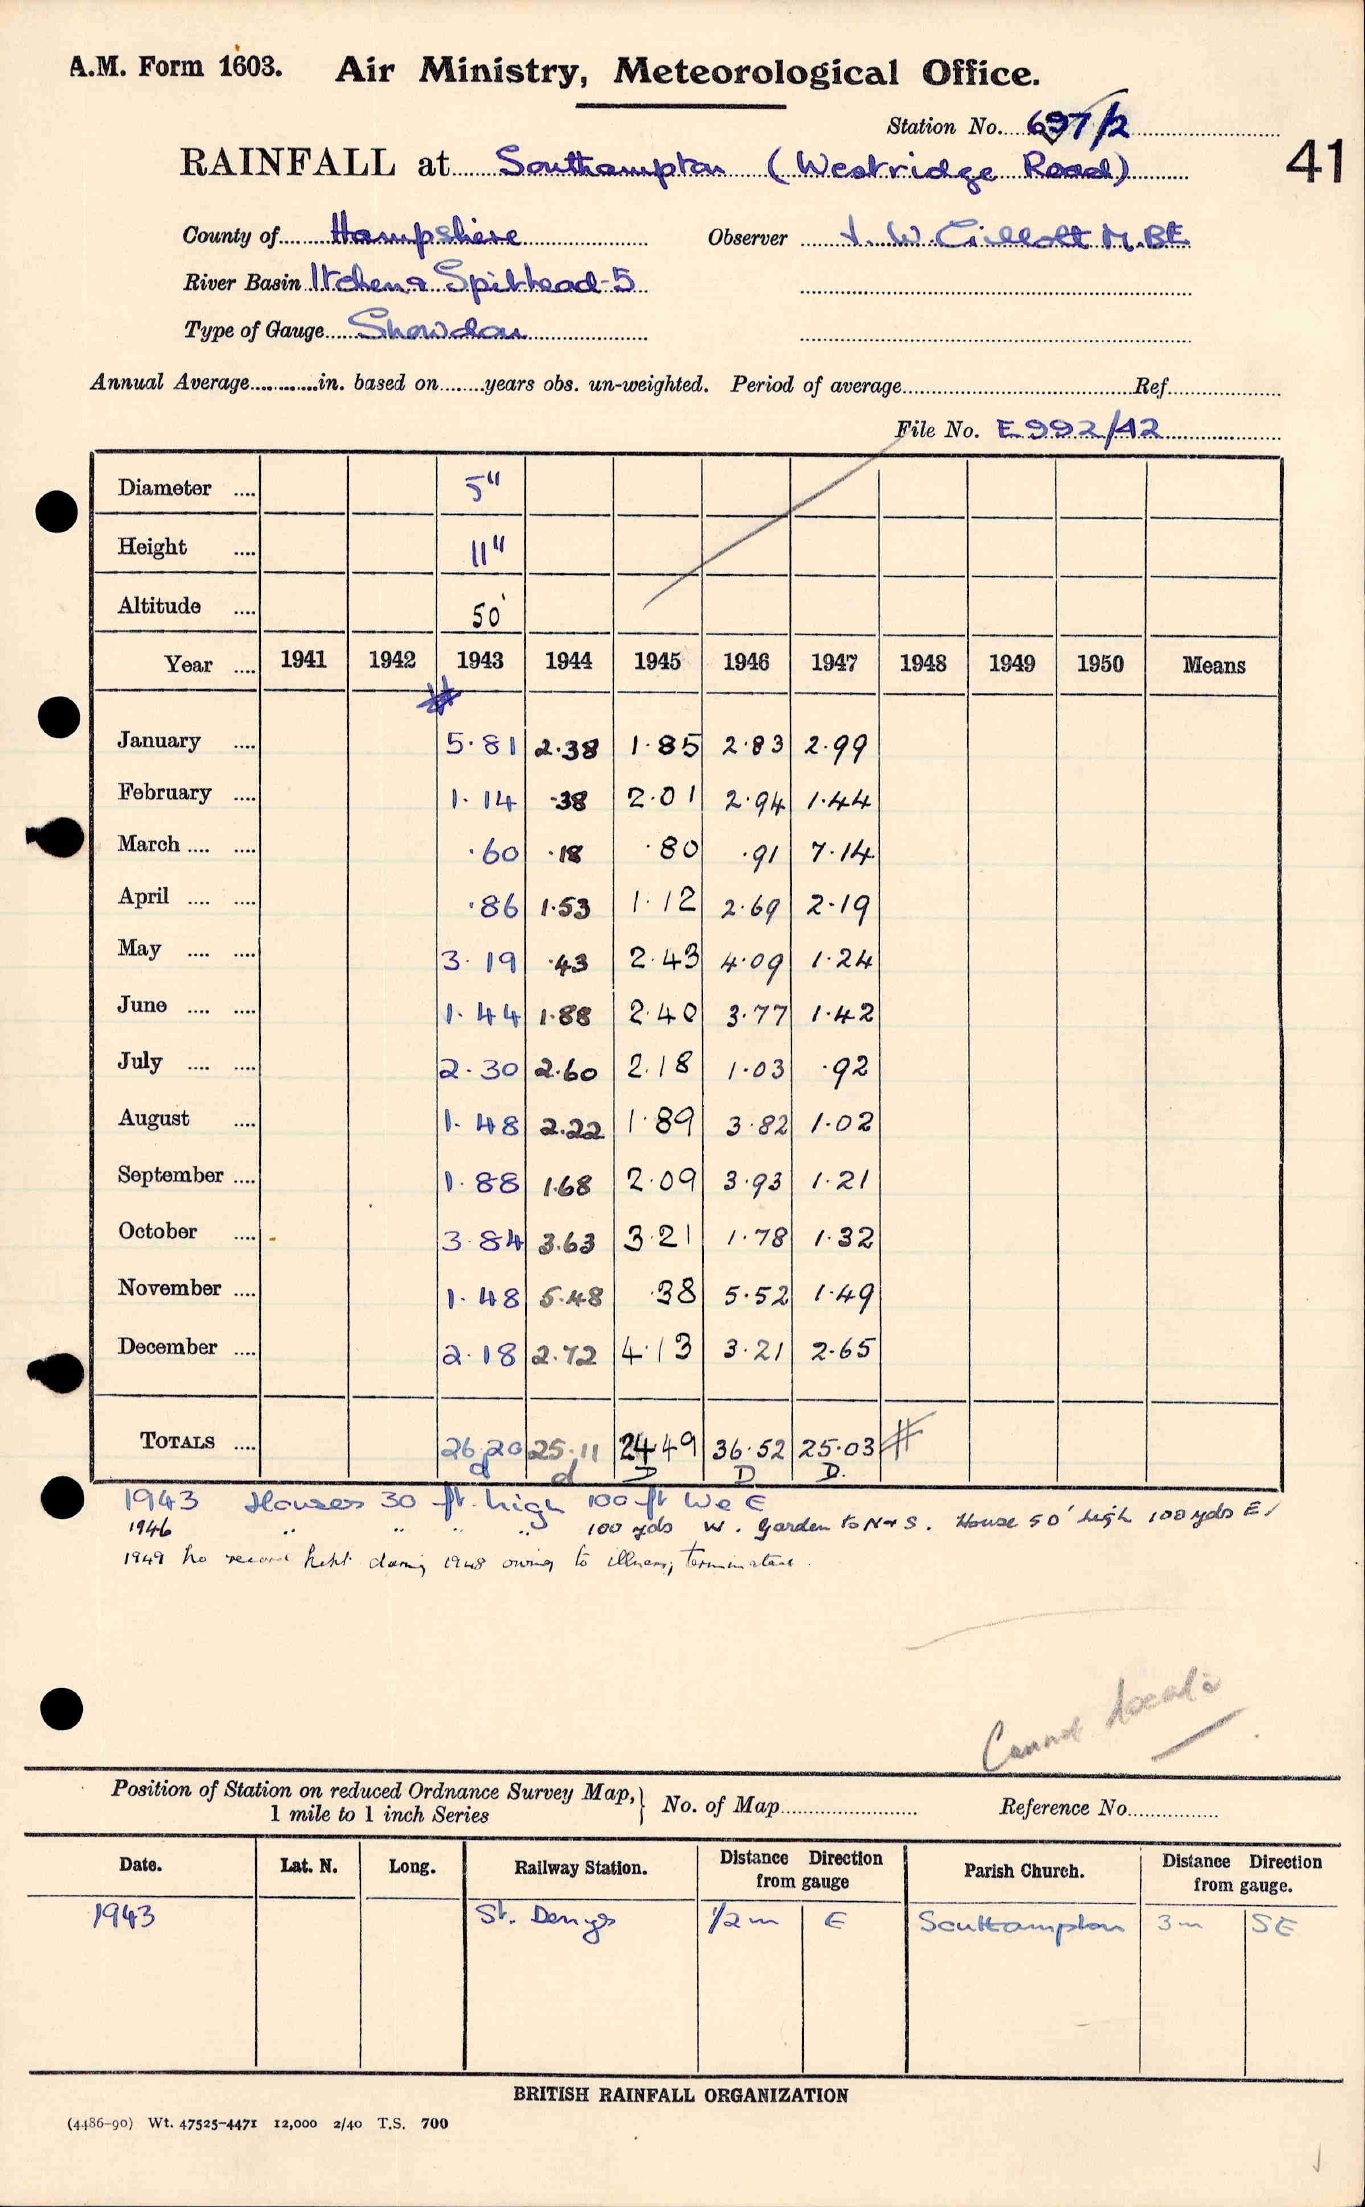 A.M. Form 1603. Air Ministry, Meteorological Office.
Station No. 697/2
RAINFALL at Southampton (Westridge Road)
41
County of Hampshire Observer J. W. Gillott M.B.E.
River Basin Itchen & Spithead-5
Type of Gauge Snowdon
Annual Average in. based on years obs. un-weighted. Period of average Ref
File No. E992/42
Diameter .... 5"
Height .... 11"
Altitude .... 50'
Year .... 1941 1942 1943 1944 1945 1946 1947 1948 1949 1950 Means
January .... 5.81 2.38 1.85 2.83 2.99
February .... 1.14 .38 2.01 2.94 1.44
March .... .... .60 .18 .80 .91 7.14
April .... .... .86 1.53 1.12 2.69 2.19
May .... .... 3.19 .43 2.43 4.09 1.24
June .... .... 1.44 1.88 2.40 3.77 1.42
July .... .... 2.30 2.60 2.18 1.03 .92
August .... 1.48 2.22 1.89 3.82 1.02
September .... 1.88 1.68 2.09 3.93 1.21
October .... 3.84 3.63 3.21 1.78 1.32
November .... 1.48 5.48 .38 5.52 1.49
December .... 2.18 2.72 4.13 3.21 2.65
TOTALS .... 26.20 25.11 24.49 36.52 25.03
d d D D D.
1943 Houses 30 ft. high 100 ft W & E
1946 " " " " 100 yds W. Garden to N & S. House 50' high 100 yds E
1949 No record kept during 1948 owing to illness, terminated.
Cannot locate
Position of Station on reduced Ordnance Survey Map, } No. of Map Reference No.
1 mile to 1 inch Series
Date. Lat. N. Long. Railway Station. Distance Direction from gauge Parish Church. Distance Direction from gauge.
1943 St. Denys 1/2 m E Southampton 3m SE
BRITISH RAINFALL ORGANIZATION
(4486-90) Wt. 47525-4471 12,000 2/40 T.S. 700